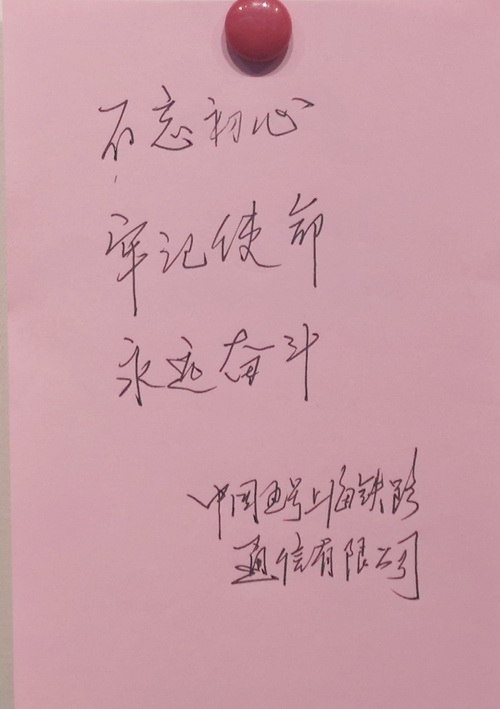 不忘初心
牢记使命
永远奋斗
中国通号上海铁路
通信有限公司